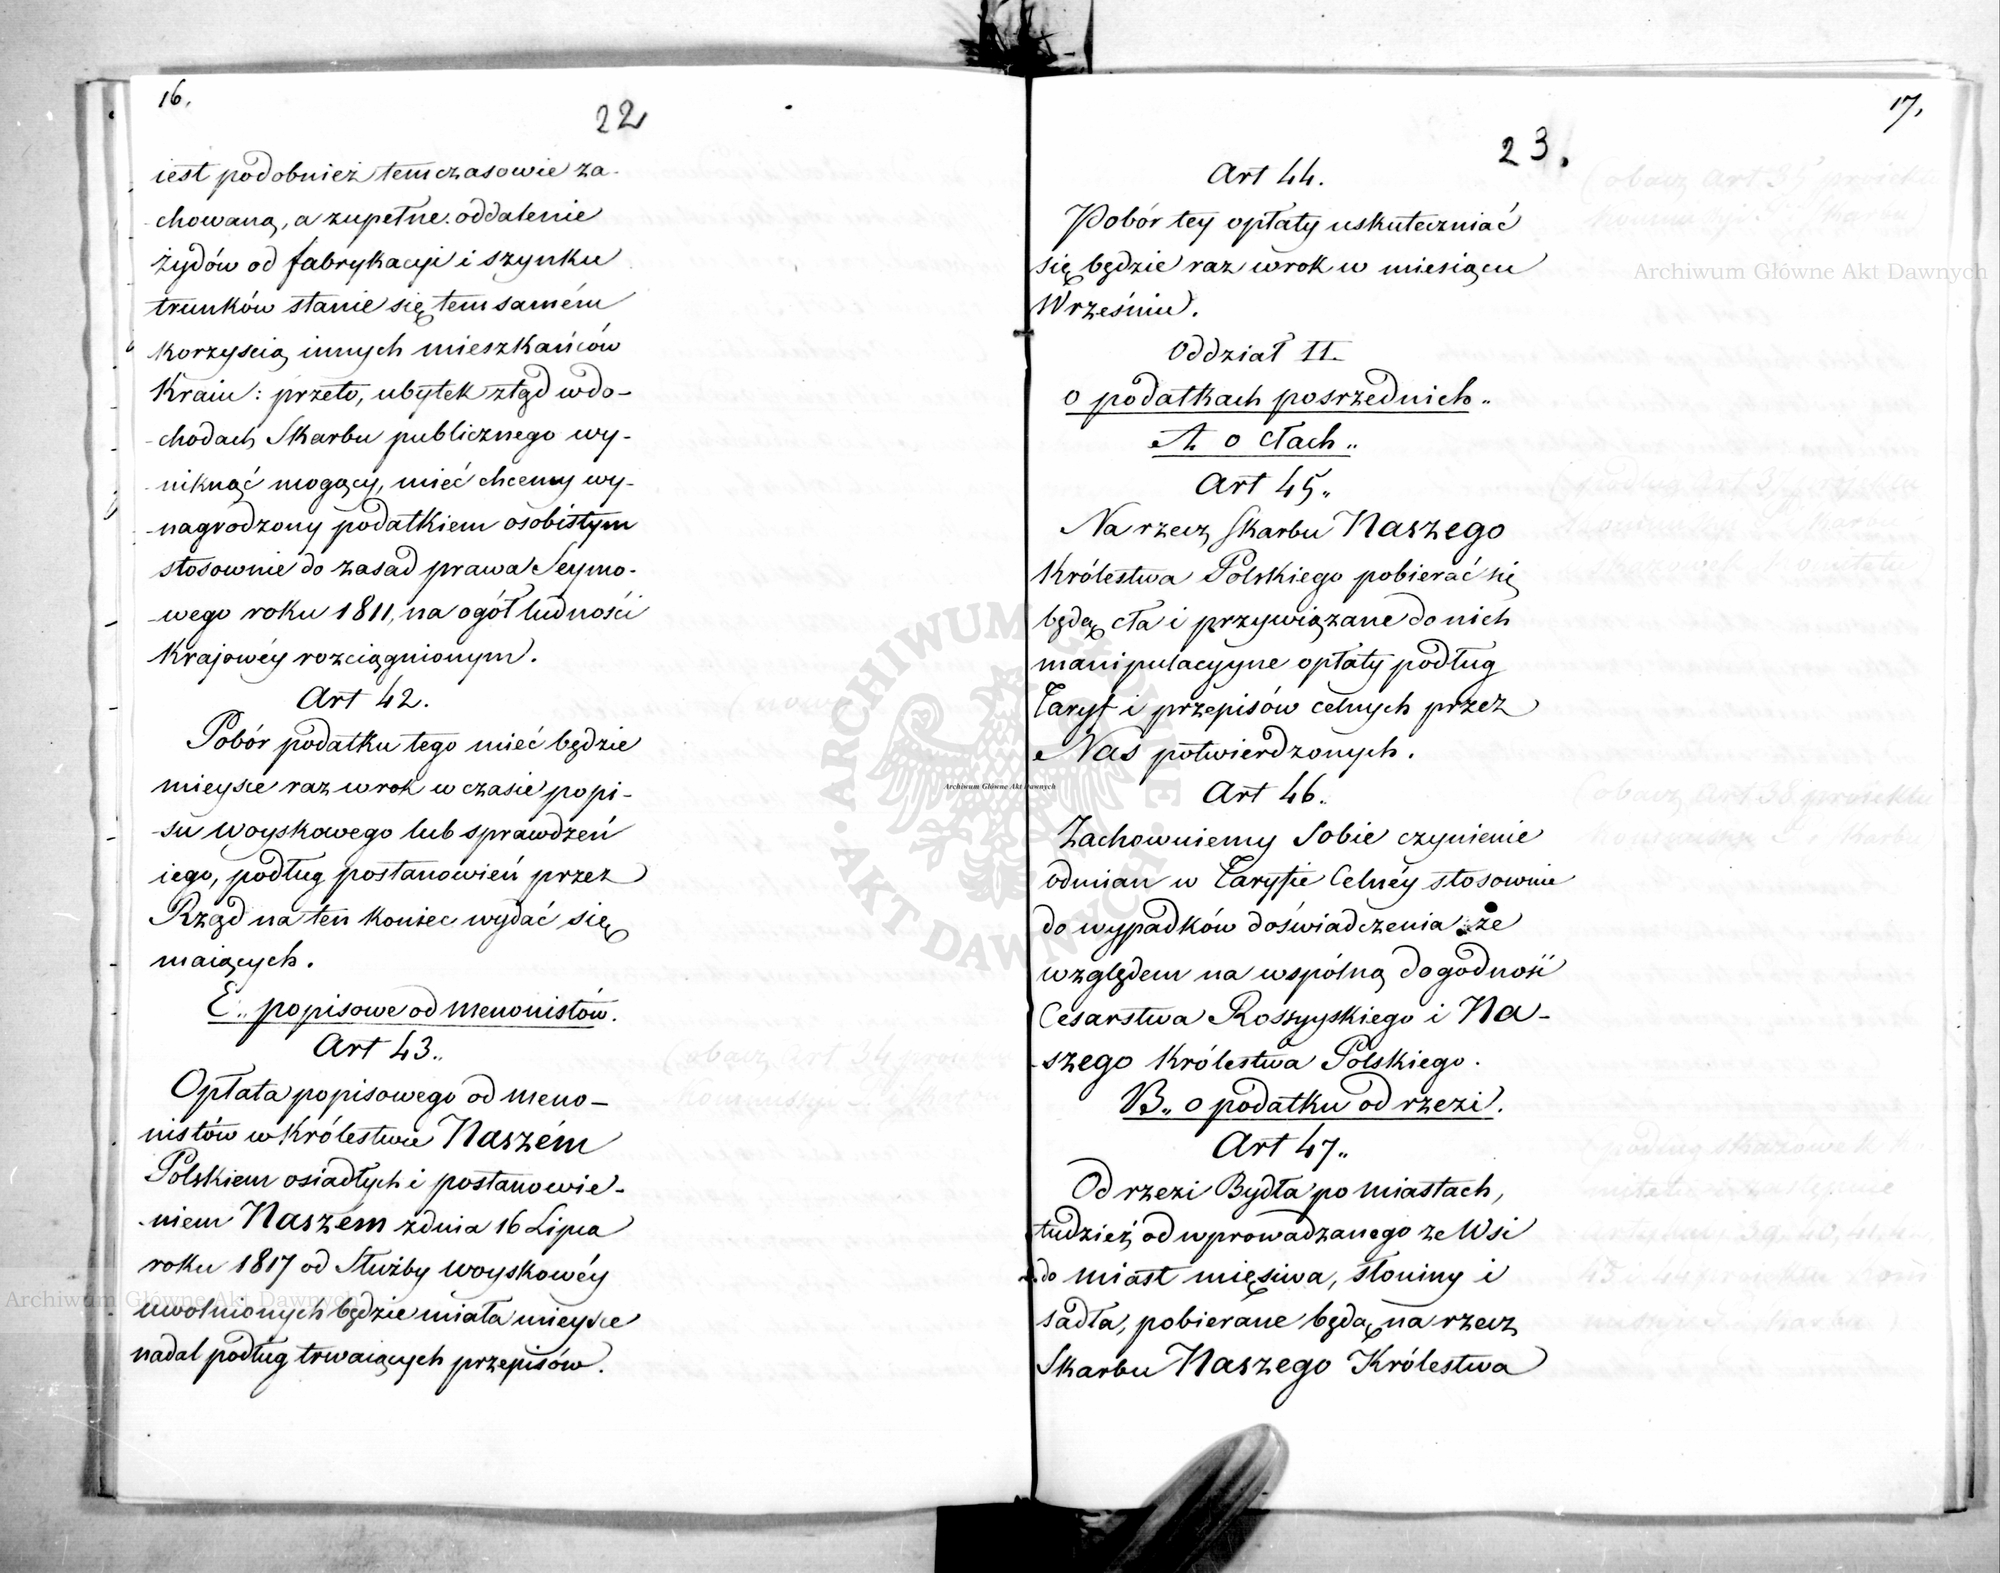 16.
22
iest podobnież temczasowie za-
-chowaną, a zupełne oddalenie
żydów od fabrykacyi i szynku
trunków stanie się tem samém
korzyścią innych mieszkańców
Kraiu: przeto, ubytek ztąd w do-
-chodach Skarbu publicznego wy-
-niknąć mogący, mieć chcemy wy-
-nagrodzony podatkiem osobistym
stosownie do zasad prawa Seymo-
-wego roku 1811, na ogół ludności
Krajowéy rozciągnionym.
Art 42.
Pobór podatku tego mieć będzie
mieysce raz w rok w czasie popi-
-su woyskowego lub sprawdzeń
iego, podług postanowień przez
Rząd na ten koniec wydać się
maiących.
E.. popisowe od menonistów.
Art 43..
Opłata popisowego od meno-
nistów w Królestwie Naszém
Polskiem osiadłych i postanowie-
-niem Naszém z dnia 16 Lipca
roku 1817 od Służby woyskowéy
uwolnionych będzie miała mieysce
nadal podług trwaiących przepisów.
17.
23.
Art 44.
Pobór tey opłaty uskuteczniać
się będzie raz w rok w miesiącu
Wrześniu.
Oddział II.
o podatkach posrzednich..
A. o cłach..
Art 45..
Na rzecz Skarbu Naszego
Królestwa Polskiego pobierać się
będą cła i przywiązane do nich
manipulacyyne opłaty podług
Taryf i przepisów celnych przez
Nas potwierdzonych.
Art 46..
Zachowuiemy Sobie czynienie
odmian w Taryfie Celnéy stosownie
do wypadków doświadczenia ze
względem na wspólną dogodność
Cesarstwa Rossyyskiego i Na-
-szego Królestwa Polskiego.
B.. o podatku od rzezi.
Art 47..
Od rzezi Bydła po miastach,
tudzież od wprowadzanego ze Wsi
do miast mięsiwa, słoniny i
sadła, pobierane będą na rzecz
Skarbu Naszego Królestwa
Archiwum Główne Akt Dawnych
Archiwum Główne Akt Dawnych
Archiwum Główne Akt Dawnych
ARCHIWUM GŁÓWNE · AKT DAWNYCH ·